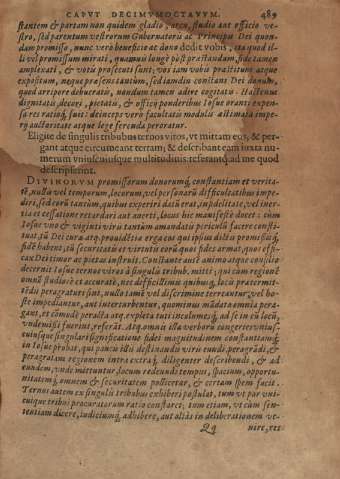 CAPVT DECIMVMOCTAVVM. 489
stantem & partam non quidem gladio, arcu, studio aut officio ve-
stro, sed parentum vestrorum Gubernatoris ac Principis Dei quon-
dam promisso, nunc verò beneficio ac dono dedit vobis, ea quod il-
li vel promissum mirati, quamuis longè pòst præstandum, fide tamen
amplexati, & votis prosecuti sunt: vos iam vobis præstitum atque
expositum, neque prosentium, sed iamdiu constans Dei donum,
quod arripere debueratis, nondum tamen adire cogitatis. Hactenus
dignitatis decori, pietatis, & officij ponderibus Iosue oranti expen-
sa res
ry auctoritate atque lege ferenda peroratur.
Eligite de singulis tribubus ternos viros, vt mittam eos, & per-
gant atque circumeant terram; & describant eam iuxta nu-
merum vniuscuiusque multitudinis: referantq; ad me quod
descripserint.
DIVINORVM promissorum donorumq; constantiam et verita-
tē, nulla vel temporum, locorum, vel personarū difficultatibus impe-
diri, sed eorū tantùm, quibus experiri datū erat, infidelitate, vel iner-
tia et cessatione retardari aut auerti, locus hic manifestè docet: cùm
Iosue vno & viginti viris tantùm amandatis periculū facere consti-
tuat, tū Dei cura atq; prouidētia erga eos qui ipsius dictis promissisq;
fidē habent, tū securitatis et virtutis eorū quos fides armat, quos effi-
cax Dei timor ac pietas instruit. Constante autē animo atque consilio
decernit Iosue ternos viros à singulis tribub. mitti; qui cùm regionē
omnē studiosè et accuratè, nec difficillimis quibusq; locis prætermit-
tēdis peragraturi sint, nullo tamē vel discrimine terreantur, vel ho-
ste impediantur, aut intertorbentur, quominùs mādata omnia pera-
gant, et cōmodè peralta atq; expleta tuti incolumesq; ad se in eū locū,
vnde missi fuerint, referāt. Atq; omnis illa verborū congeries vnius-
cuiusque singularis significatione fidei magnitudinem constantiamq;
in Iosue probat, qui paucis illis destinandis viris eundi, peragrādi, &
peragratam regionem intra extráq; diligenter describendi, & ad
eundem, vnde mittuntur, locum redeundi tempus, spacium, opportu-
nitatemq; omnem & securitatem pollicetur, & certam spem facit.
Ternos autem ex singulis tribubus exhiberi postulat, tum vt par vni-
cuique tribui procuratorum ratio constaret; tum etiam, vt cùm sen-
tentiam dicere, iudiciumq; adhibere, aut aliàs in deliberationem ve-
Qq nire, res